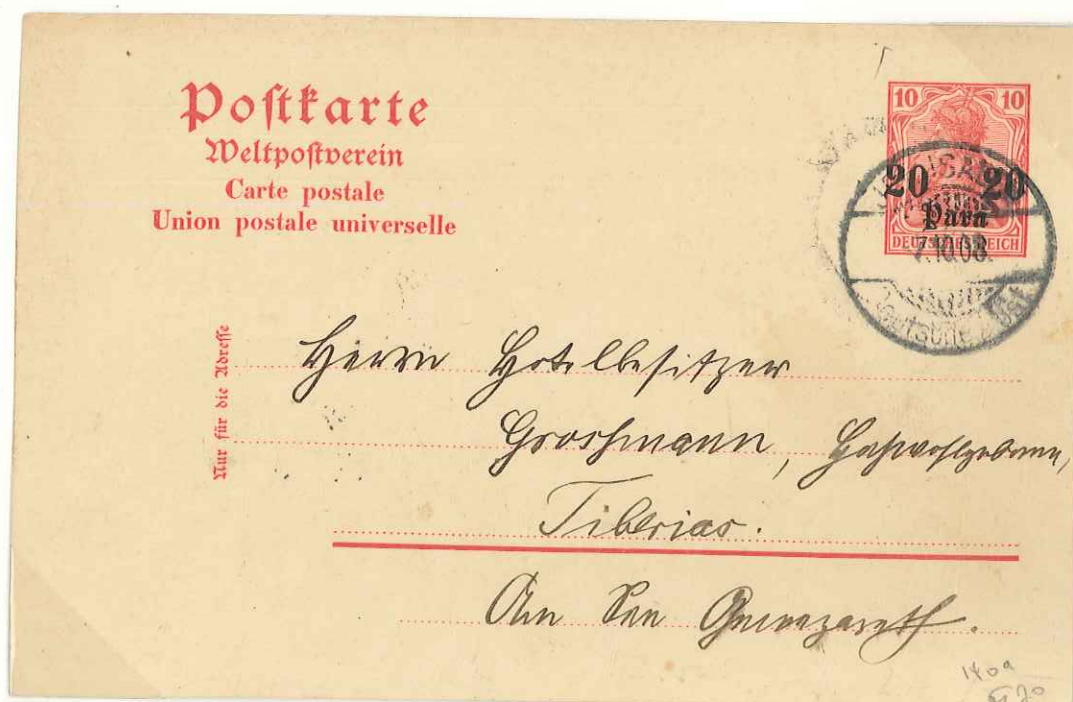 Postkarte
Weltpostverein
Carte postale
Union postale universelle
10 10
20 20
Para
DEUTSCHES REICH
JERUSALEM
7.10.08.
Deutsche Post
Nur für die Adresse
Herrn Hotelbesitzer
Grossmann, Hochwohlgeboren,
Tiberias.
Am See Genezareth.